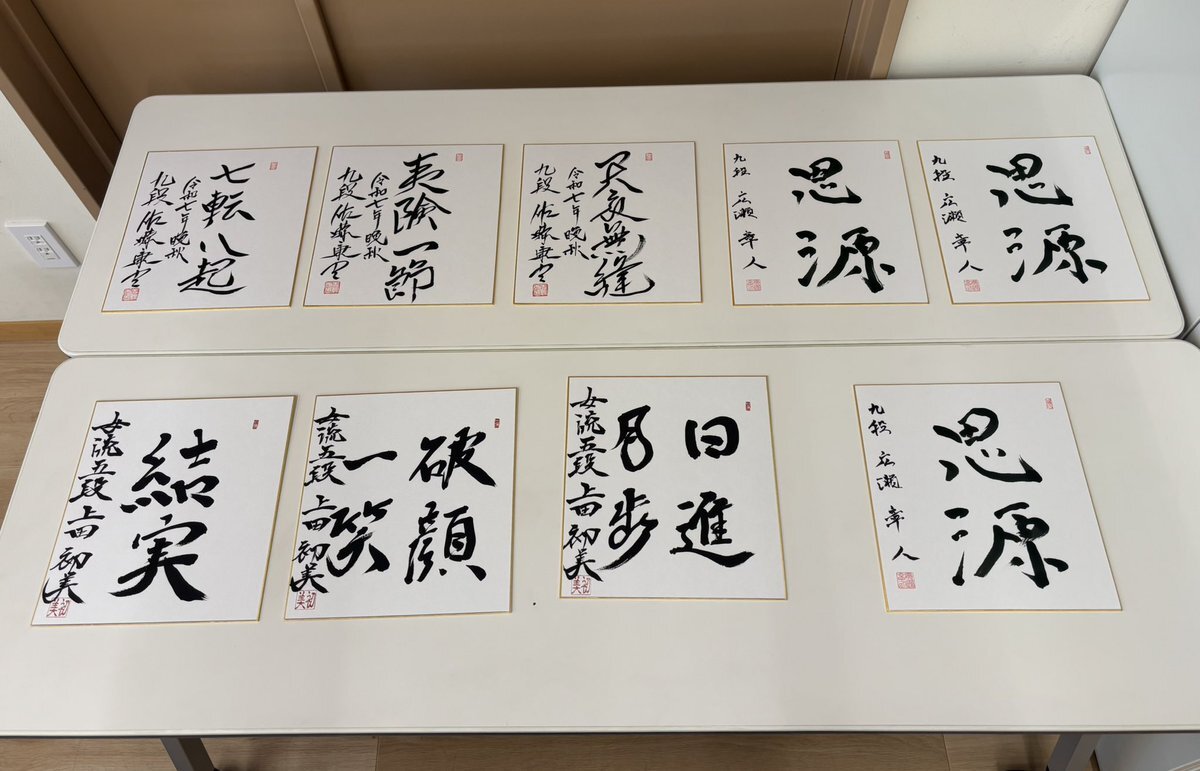 七転八起
令和七年晩秋
九段 佐藤康光
夷険一節
令和七年晩秋
九段 佐藤康光
天衣無縫
令和七年晩秋
九段 佐藤康光
思源
九段 広瀬 章人
思源
九段 広瀬 章人
結実
女流五段 上田 初美
破顔
一笑
女流五段 上田 初美
日進
月歩
女流五段 上田 初美
思源
九段 広瀬 章人